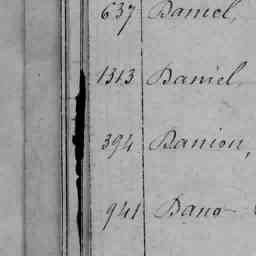 637 Daniel,
1313 Daniel
394 Danion,
941 Dano